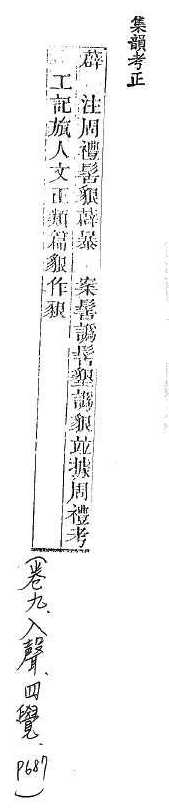 集韻考正
薜 注周禮髻貇薜暴 案髺譌髻墾譌貇竝據周禮考
工記旊人文正類篇貇作豤
(卷九、入聲、四覺、P687)